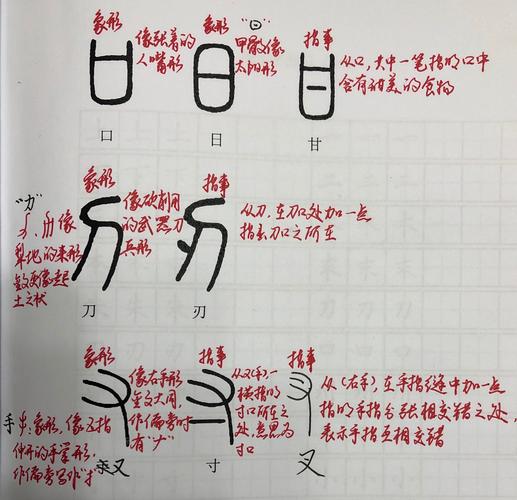 象形
像张着的
人嘴形
口
象形 "⊖"
甲骰像
太阳形
日
指事
从口，其中一笔指明口中
含有甜美的食物
甘
象形
像砍削用
的武器刀
兵形
刀
"力"
像
犁地的耒形
土之状
指事
从刀，在刀口处加一点
指示刀口之所在
刃
象形
像右手形
作偏旁时
有"ナ"
又
手
：象形，像五指
伸开的手掌形，
作偏旁写作"扌"
指事
从又(手)，一
横指明
寸口所在之
处，意思为
寸口
寸
指事
从(右手)，在手指缝中加一点
指明手指分张相交错之处，
表示手指互相交错
叉